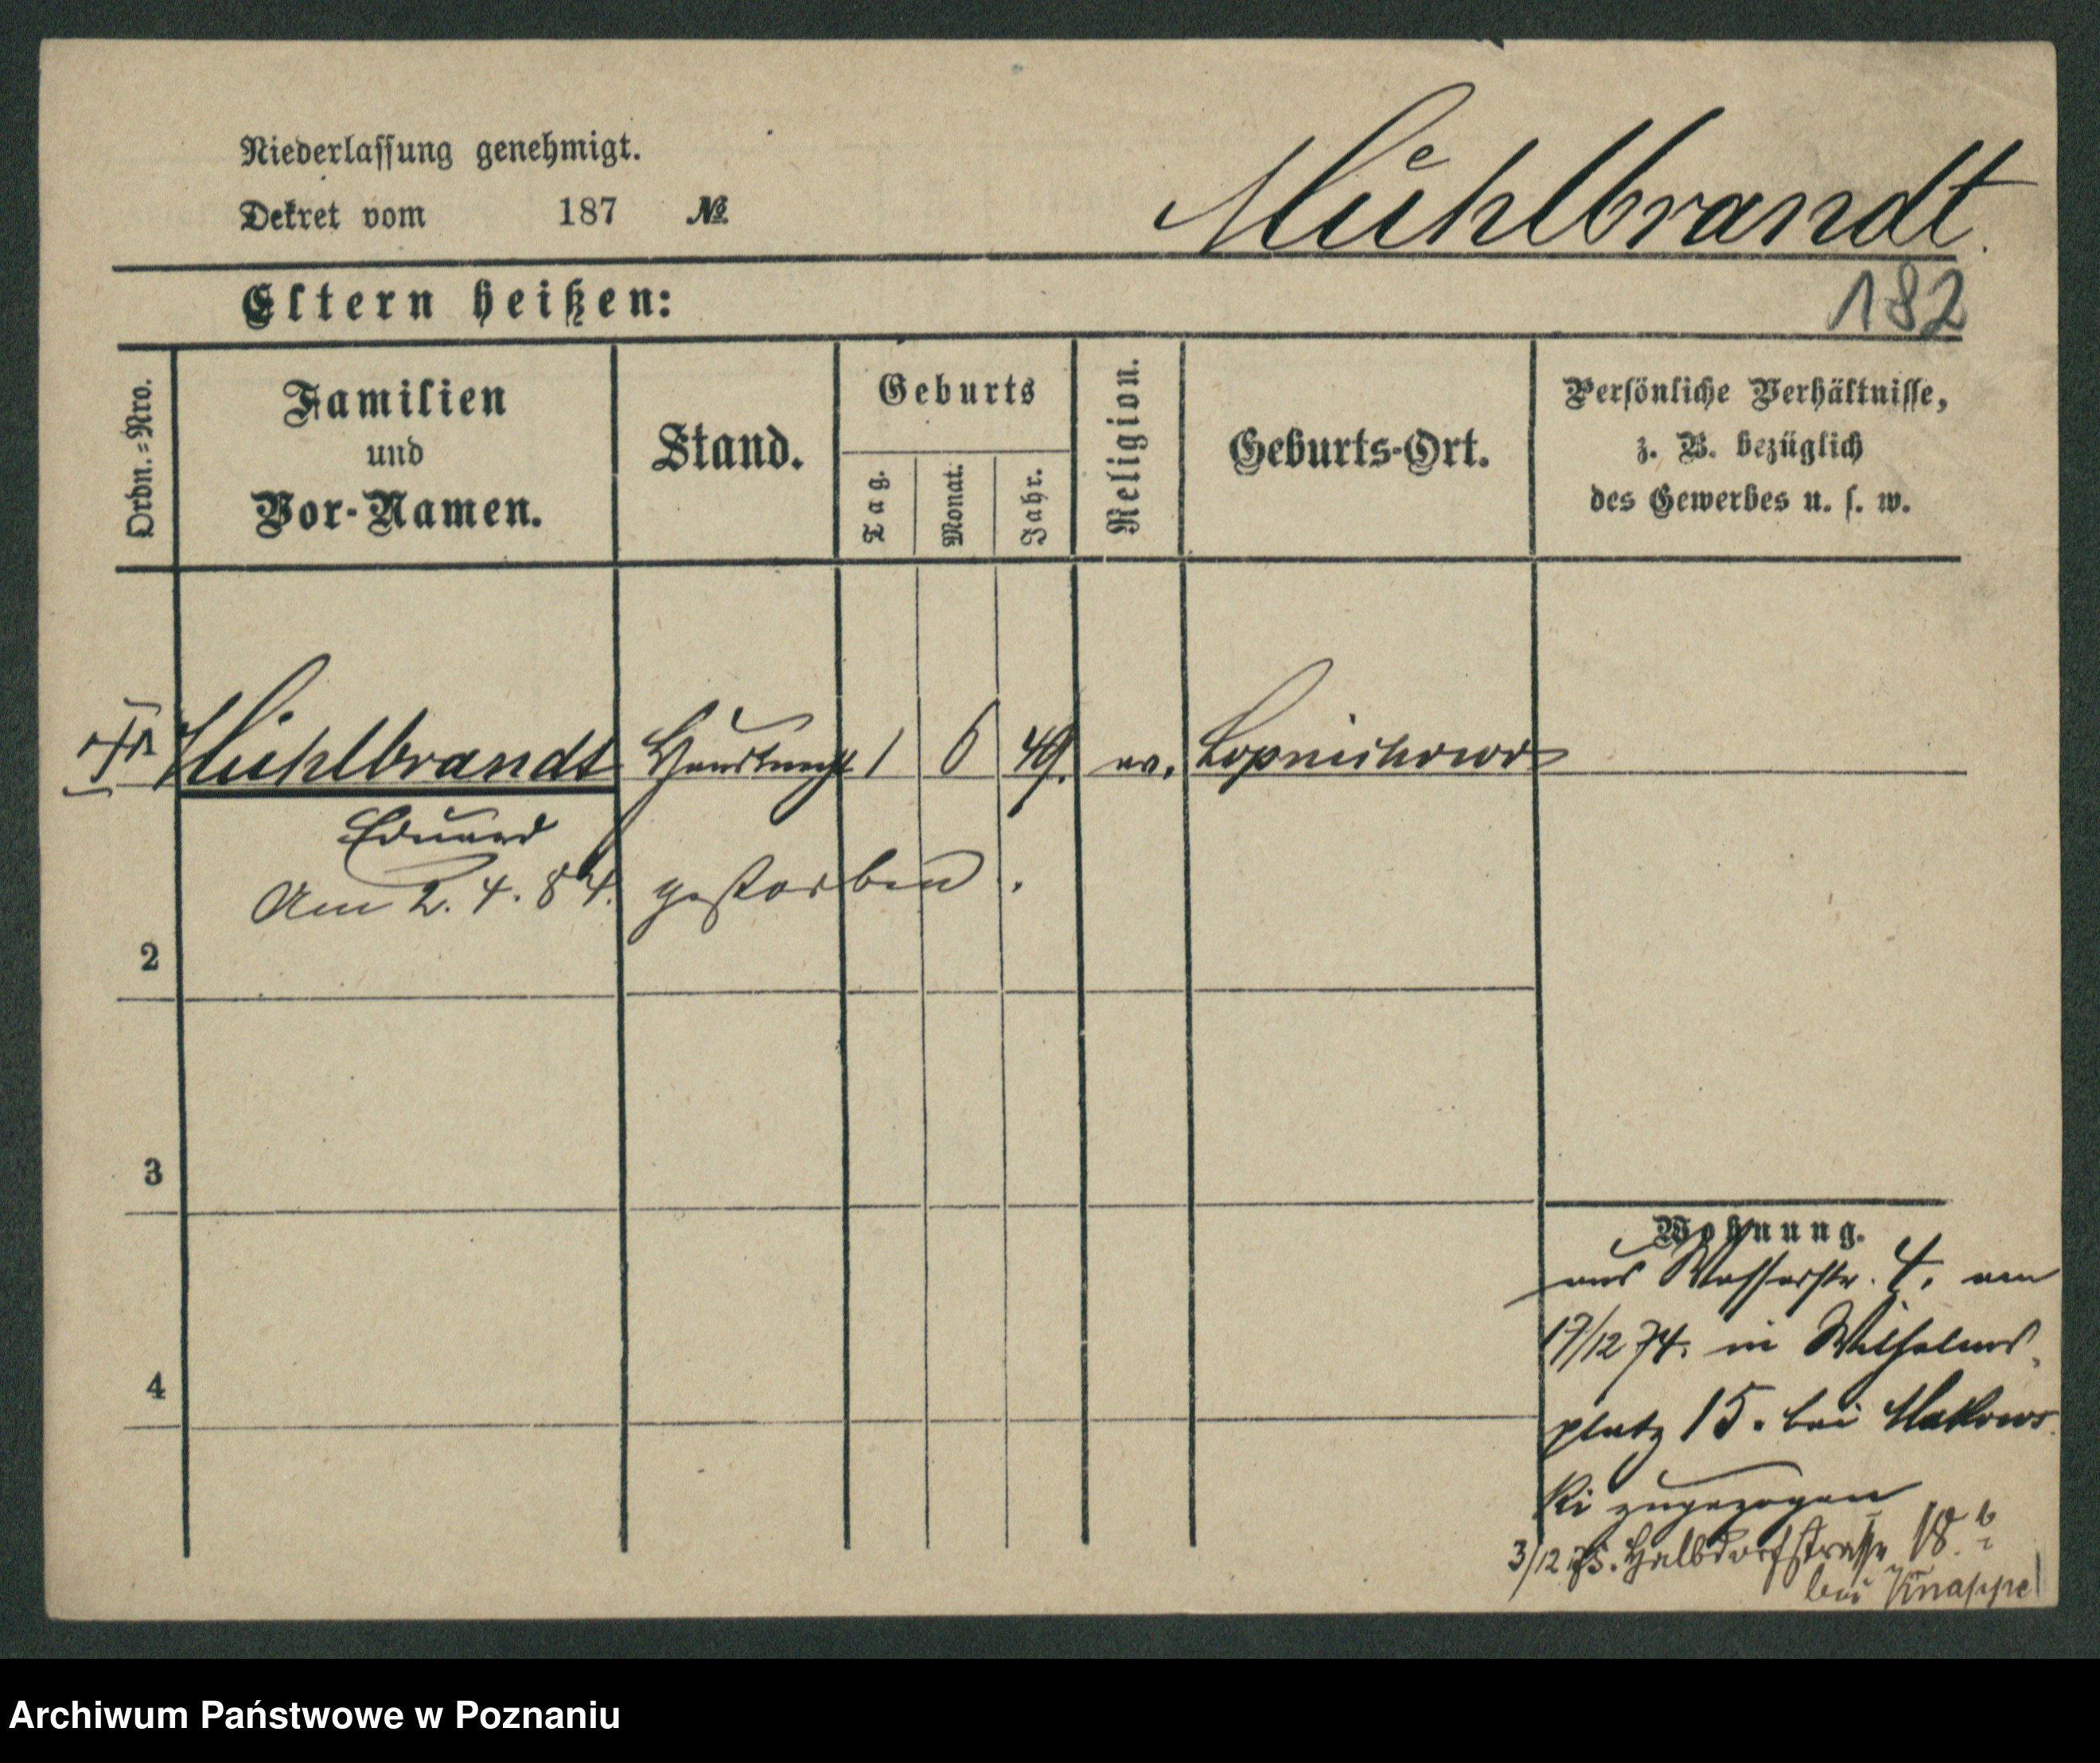 Niederlassung genehmigt.
Dekret vom 187 №
Mühlbrandt
182
Eltern heißen:
Ordn.=Nro.
Familien
und
Vor-Namen.
Stand.
Geburts
Tag.
Monat.
Jahr.
Religion.
Geburts-Ort.
Persönliche Verhältnisse,
z. B. bezüglich
des Gewerbes u. s. w.
Mühlbrandt Hausknecht 1 6 49. ev.
Eduard
Am 2. 4. 84. gestorben.
2
3
4
Wohnung.
aus Wasserstr. 4. am
17/12 74. in Wilhelms
platz 15. bei Makows
ki zugezogen
3/12 75. Halbdorfstrasse 18.
bei Knappe
Archiwum Państwowe w Poznaniu